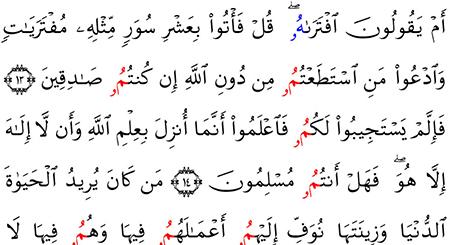 أَمْ يَقُولُونَ ٱفْتَرَىٰهُۥ ۖ قُلْ فَأْتُوا۟ بِعَشْرِ سُوَرٍ مِّثْلِهِۦ مُفْتَرَيَـٰتٍ
وَٱدْعُوا۟ مَنِ ٱسْتَطَعْتُمُۥ مِن دُونِ ٱللَّهِ إِن كُنتُمُۥ صَـٰدِقِينَ ١٣
فَإِلَّمْ يَسْتَجِيبُوا۟ لَكُمُۥ فَٱعْلَمُوٓا۟ أَنَّمَآ أُنزِلَ بِعِلْمِ ٱللَّهِ وَأَن لَّآ إِلَـٰهَ
إِلَّا هُوَ ۖ فَهَلْ أَنتُمُۥ مُسْلِمُونَ ١٤ مَن كَانَ يُرِيدُ ٱلْحَيَوٰةَ
ٱلدُّنْيَا وَزِينَتَهَا نُوَفِّ إِلَيْهِمُۥ أَعْمَـٰلَهُمُۥ فِيهَا وَهُمُۥ فِيهَا لَا